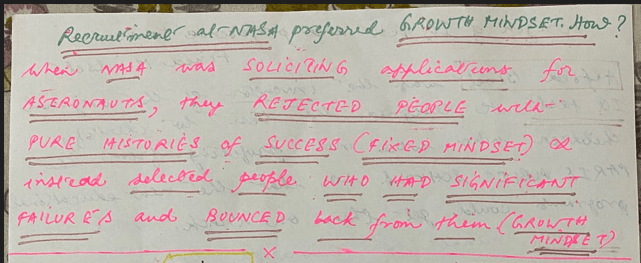 Recruitment at NASA preferred GROWTH MINDSET. How?
When NASA was SOLICITING applications for
ASTRONAUTS, they REJECTED PEOPLE with
PURE HISTORIES of SUCCESS (FIXED MINDSET) OR
instead selected people WHO HAD SIGNIFICANT
FAILURE'S and BOUNCED back from them (GROWTH
MINDSET)
x